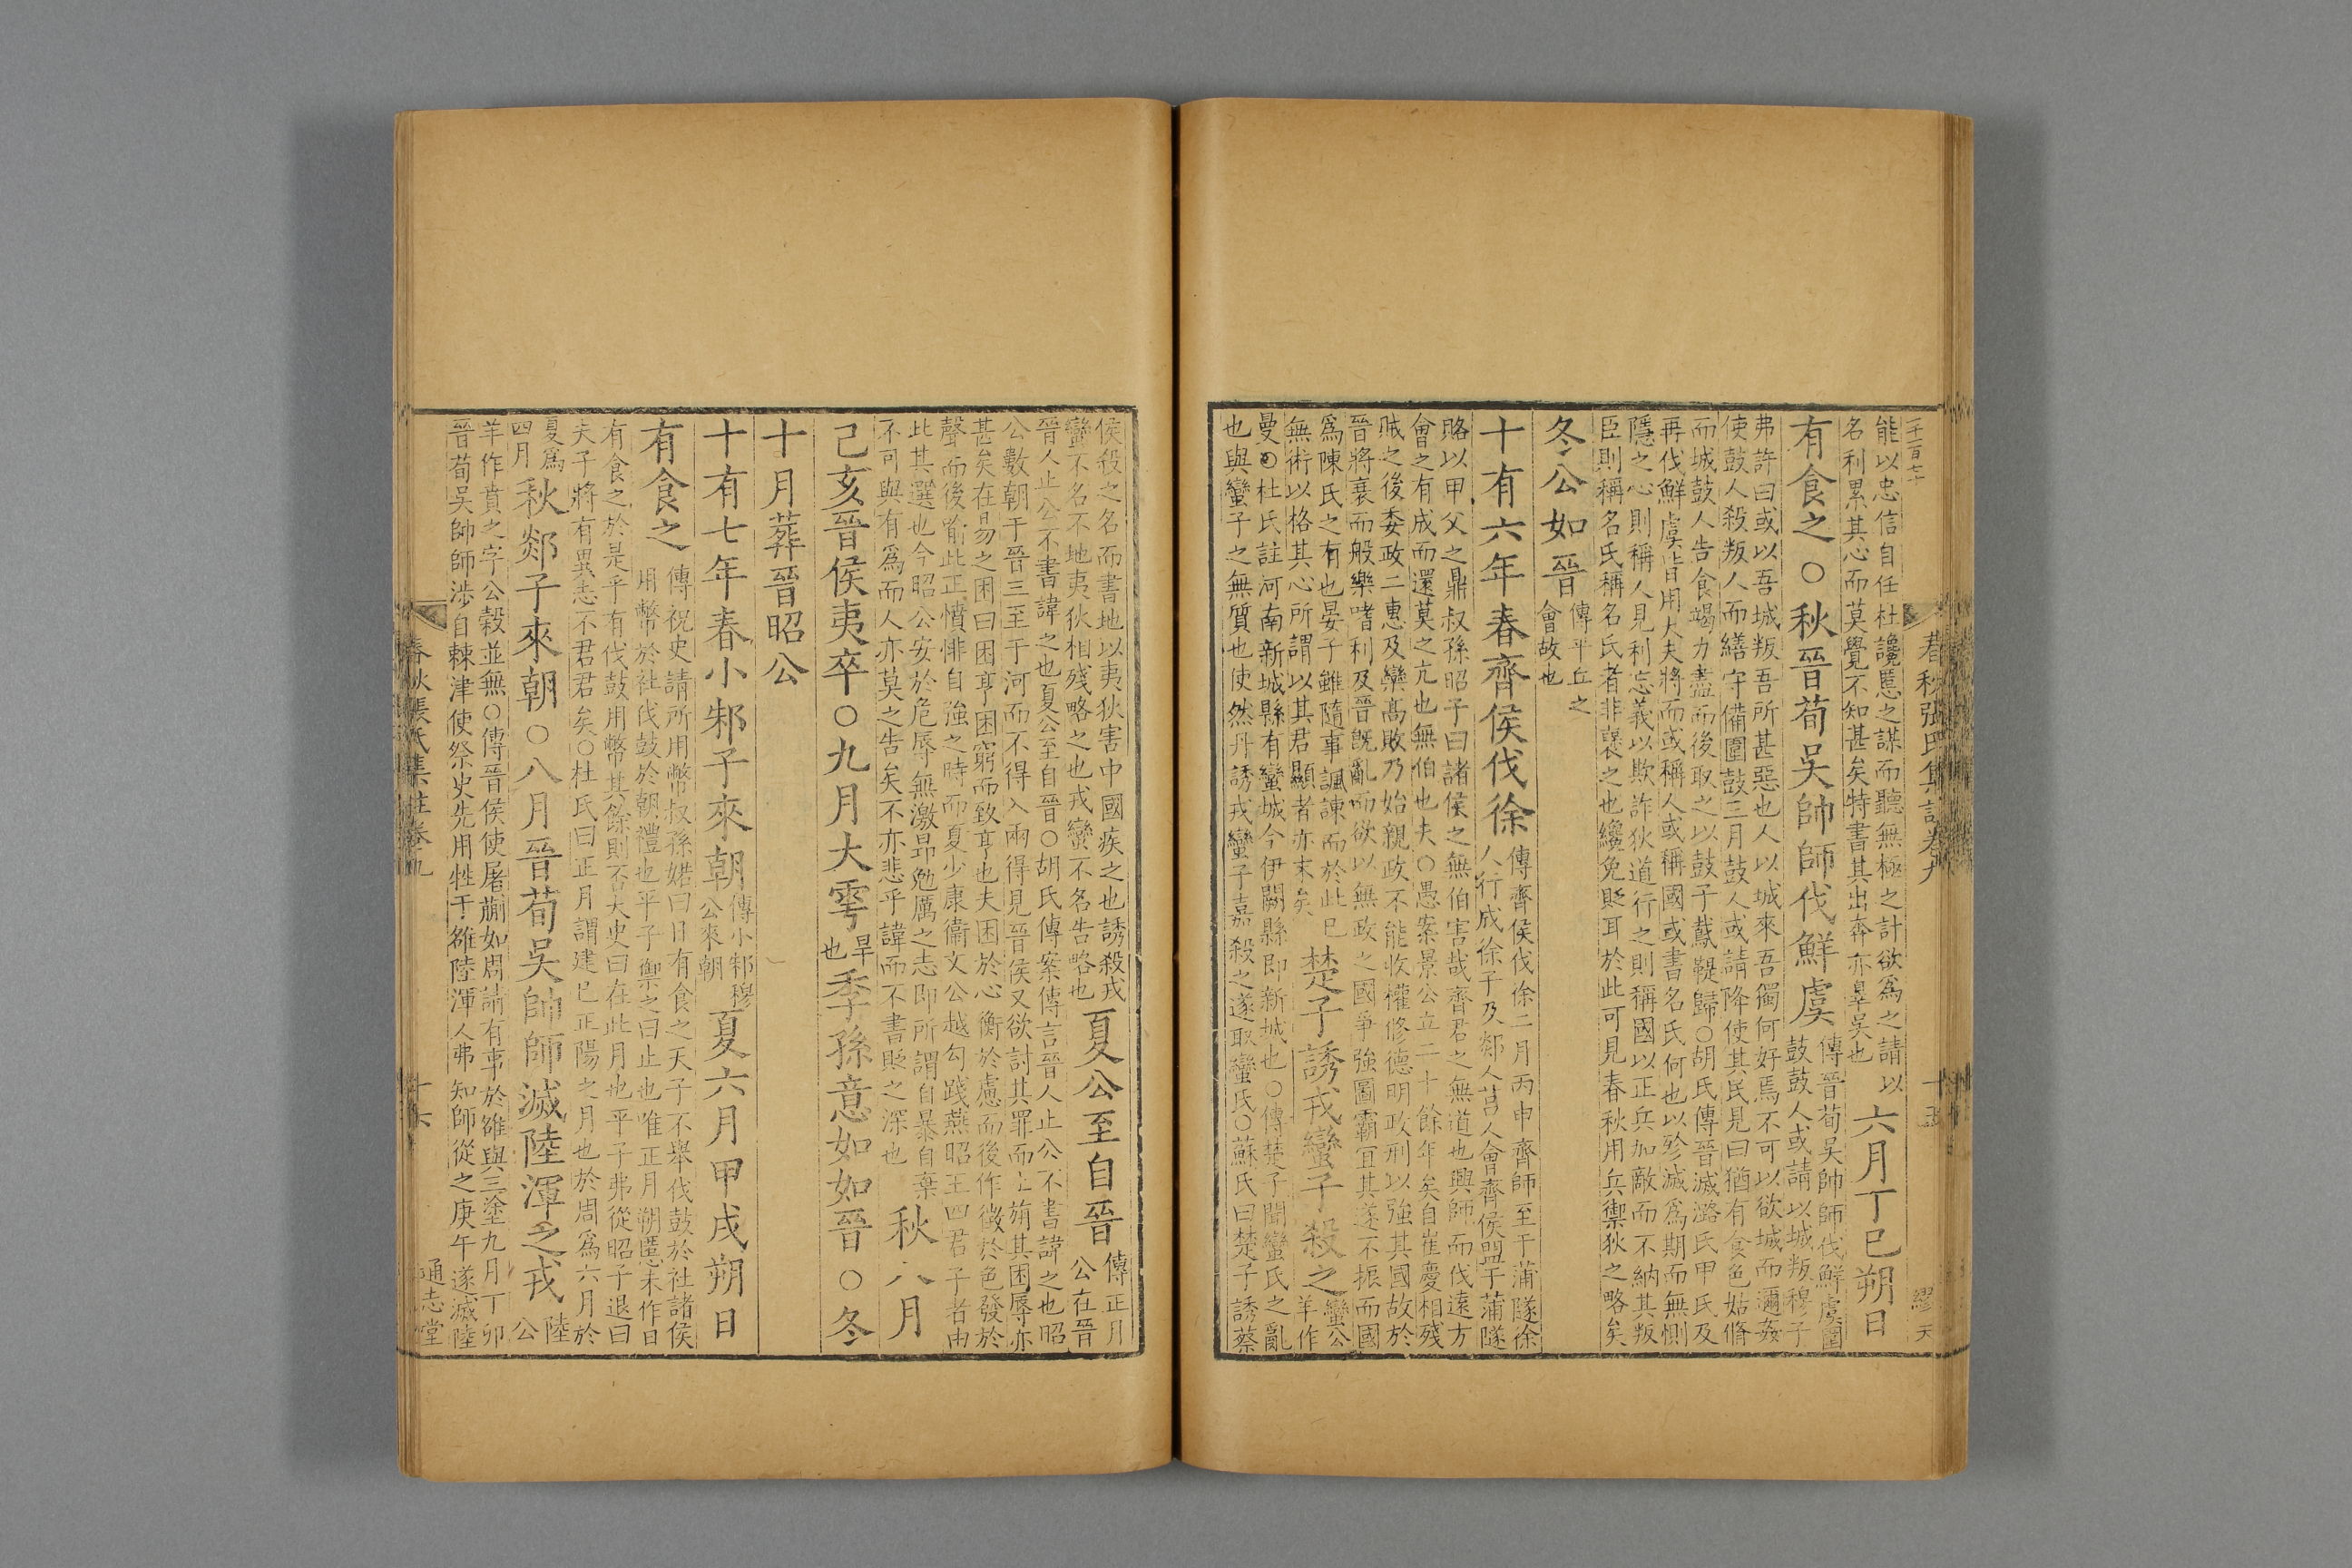 能以忠信自任杜讒慝之謀而聽無極之計欲爲之請以
名利累其心而莫覺不知甚矣特書其出奔亦辠吳也
六月丁巳朔日
有食之○秋晉荀吳帥師伐鮮虞
傳晉荀吳帥師伐鮮虞圍
鼓鼓人或請以城叛穆子
弗許曰或以吾城叛吾所甚惡也人以城來吾獨何好焉不可以欲城而邇姦
使鼓人殺叛人而繕守備圍鼓三月鼓人或請降使其民見曰猶有食色姑脩
而城鼓人告食竭力盡而後取之以鼓子鳶鞮歸○胡氏傳晉滅潞氏甲氏及
再伐鮮虞皆用大夫將而或稱人或稱國或書名氏何也以殄滅爲期而無惻
隱之心則稱人見利忘義以欺詐狄道行之則稱國以正兵加敵而不納其叛
臣則稱名氏稱名氏者非襃之也纔免貶耳於此可見春秋用兵禦狄之略矣
冬公如晉
傳平丘之
會故也
十有六年春齊侯伐徐
傳齊侯伐徐二月丙申齊師至于蒲隧徐
人行成徐子及郯人莒人會齊侯盟于蒲隧
賂以甲父之鼎叔孫昭子曰諸侯之無伯害哉齊君之無道也興師而伐遠方
會之有成而還莫之亢也無伯也夫○愚案景公立二十餘年矣自崔慶相殘
賊之後委政二惠及欒高敗乃始親政不能收權修德明政刑以強其國故於
晉將衰而般樂嗜利及晉旣亂而欲以無政之國爭強圖霸宜其遂不振而國
爲陳氏之有也晏子雖隨事諷諫而於此已
無術以格其心所謂以其君顯者亦末矣
楚子誘戎蠻子殺之
蠻公
羊作
曼○杜氏註河南新城縣有蠻城今伊闕縣即新城也○傳楚子聞蠻氏之亂
也與蠻子之無質也使然丹誘戎蠻子嘉殺之遂取蠻氏○蘇氏曰楚子誘蔡
春秋張氏集註卷九
十五
繆天
侯殺之名而書地以夷狄害中國疾之也誘殺戎
蠻不名不地夷狄相殘略之也戎蠻不名告略也
夏公至自晉
傳正月
公在晉
晉人止公不書諱之也夏公至自晉○胡氏傳案傳言晉人止公不書諱之也昭
公數朝于晉三至于河而不得入兩得見晉侯又欲討其罪而止旃其困辱亦
甚矣在易之困曰困亨困窮而致亨也夫困於心衡於慮而後作徵於色發於
聲而後喻此正憤悱自強之時而夏少康衞文公越勾踐燕昭王四君子者由
此其選也今昭公安於危辱無激昂勉厲之志即所謂自暴自棄
不可與有爲而人亦莫之告矣不亦悲乎諱而不書貶之深也
秋八月
己亥晉侯夷卒○九月大雩
旱
也
季孫意如如晉○冬
十月葬晉昭公
十有七年春小邾子來朝
傳小邾穆
公來朝
夏六月甲戌朔日
有食之
傳祝史請所用幣叔孫婼曰日有食之天子不舉伐鼓於社諸侯
用幣於社伐鼓於朝禮也平子禦之曰止也唯正月朔慝未作日
有食之於是乎有伐鼓用幣其餘則否大史曰在此月也平子弗從昭子退曰
夫子將有異志不君君矣○杜氏曰正月謂建巳正陽之月也於周爲六月於
夏爲
四月
秋郯子來朝○八月晉荀吳帥師滅陸渾之戎
陸
公
羊作賁之字公穀並無○傳晉侯使屠蒯如周請有事於雒與三塗九月丁卯
晉荀吳帥師涉自棘津使祭史先用牲于雒陸渾人弗知師從之庚午遂滅陸
春秋張氏集註卷九
十六
通志堂